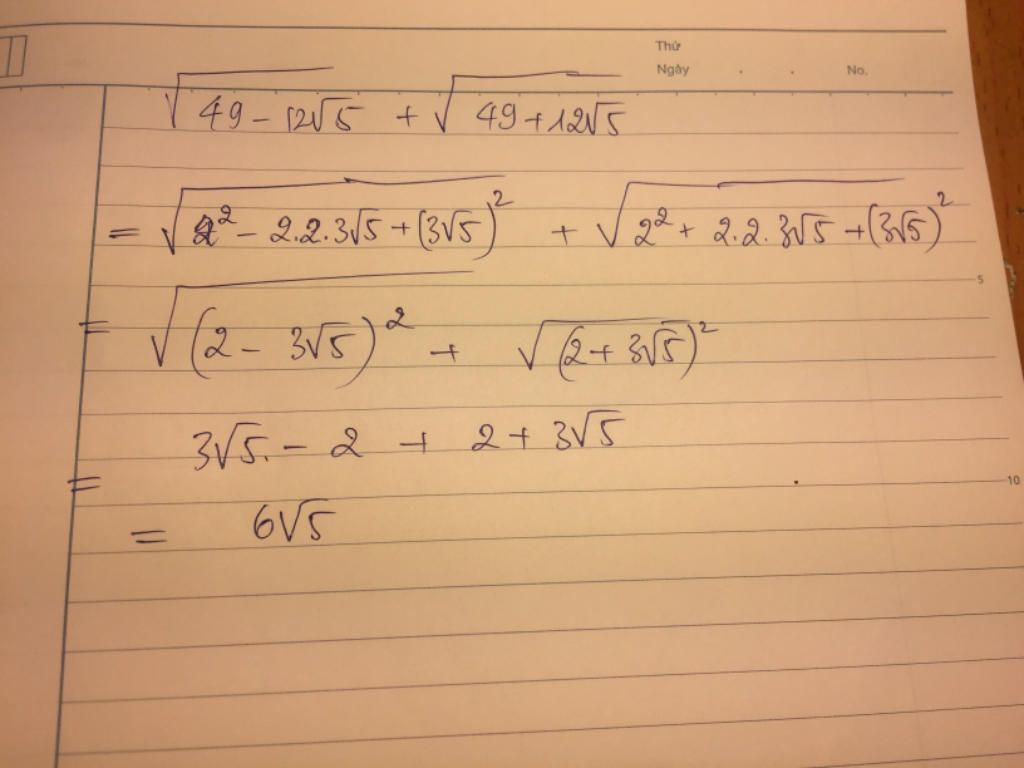 Thứ
Ngày . . No.
√(49 - 12√5) + √(49 + 12√5)
= √(2² - 2.2.3√5 + (3√5)²) + √(2² + 2.2.3√5 + (3√5)²)
5
= √(2 - 3√5)² + √(2 + 3√5)²
= 3√5 - 2 + 2 + 3√5
10
= 6√5